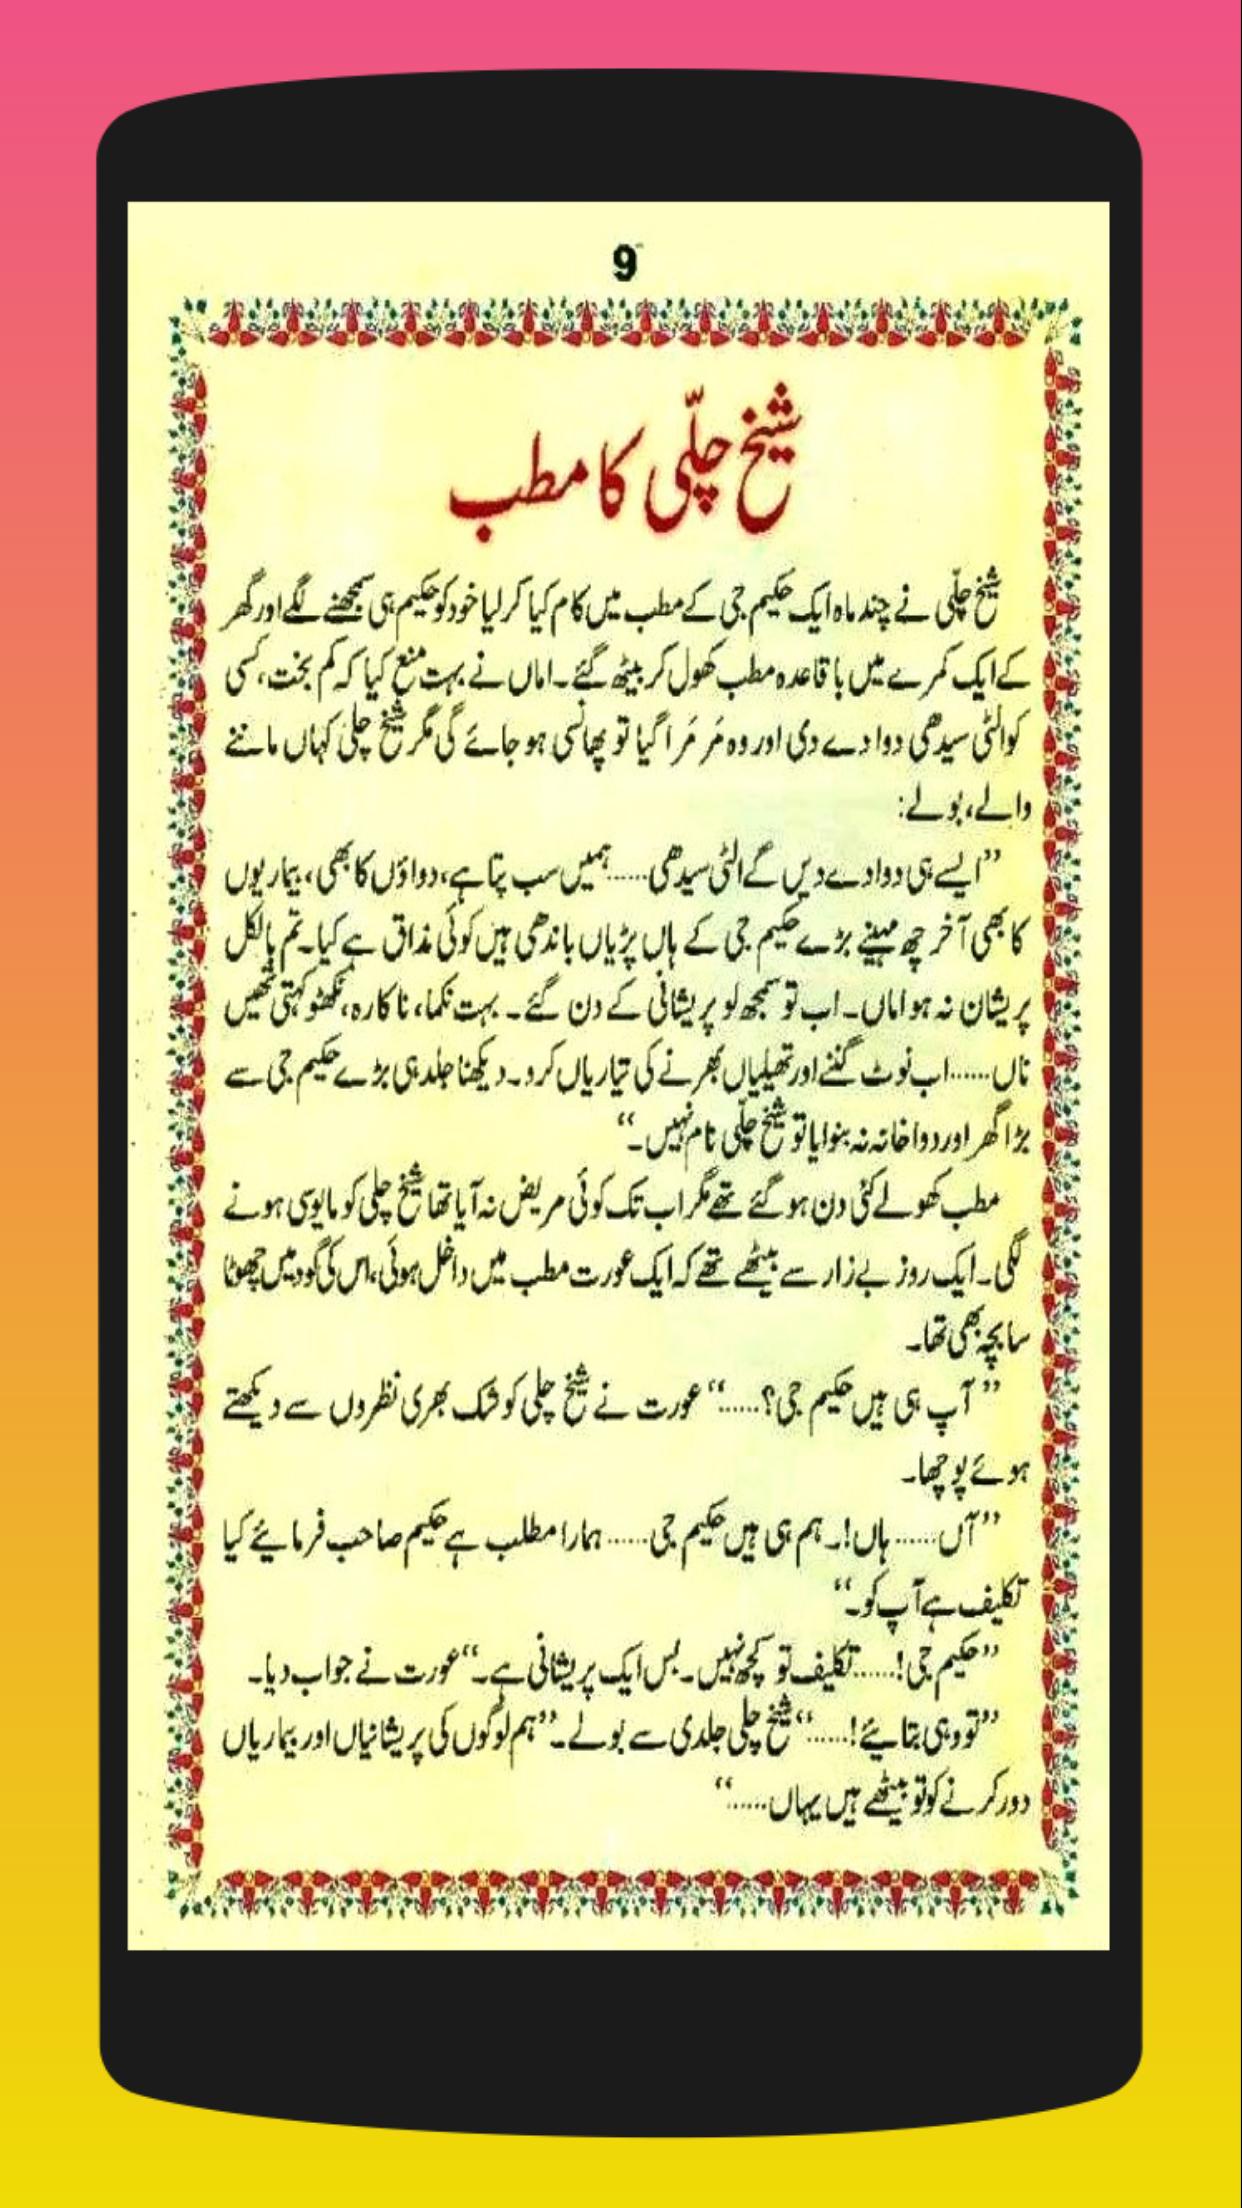 9
شیخ چلّی کا مطب
شیخ چلّی نے چند ماہ ایک حکیم جی کے مطب میں کام کیا کر لیا خود کو حکیم ہی سمجھنے لگے اور گھر
کے ایک کمرے میں باقاعدہ مطب کھول کر بیٹھ گئے۔ اماں نے بہت منع کیا کہ کم بخت، کسی
کو الٹی سیدھی دوا دے دی اور وہ مَر مَرا گیا تو پھانسی ہو جائے گی مگر شیخ چلی کہاں ماننے
والے، بولے:
”ایسے ہی دوا دے دیں گے الٹی سیدھی......ہمیں سب پتا ہے، دواؤں کا بھی، بیماریوں
کا بھی آخر چھ مہینے بڑے حکیم جی کے ہاں پڑیاں باندھی ہیں کوئی مذاق ہے کیا۔ تم بالکل
پریشان نہ ہو اماں۔ اب تو سمجھ لو پریشانی کے دن گئے۔ بہت نکما، ناکارہ، نکھٹو کہتی تھیں
ناں......اب نوٹ گننے اور تھیلیاں بھرنے کی تیاریاں کرو۔ دیکھنا جلد ہی بڑے حکیم جی سے
بڑا گھر اور دواخانہ نہ بنوایا تو شیخ چلّی نام نہیں۔“
مطب کھولے کئی دن ہو گئے تھے مگر اب تک کوئی مریض نہ آیا تھا شیخ چلی کو مایوسی ہونے
لگی۔ ایک روز بے زار سے بیٹھے تھے کہ ایک عورت مطب میں داخل ہوئی، اس کی گود میں چھوٹا
سا بچہ بھی تھا۔
”آپ ہی ہیں حکیم جی؟......“ عورت نے شیخ چلی کو شک بھری نظروں سے دیکھتے
ہوئے پوچھا۔
”آں......ہاں!۔ ہم ہی ہیں حکیم جی......ہمارا مطلب ہے حکیم صاحب فرمائیے کیا
تکلیف ہے آپ کو۔“
”حکیم جی!......تکلیف تو کچھ نہیں۔ بس ایک پریشانی ہے۔“ عورت نے جواب دیا۔
”تو وہی بتائیے!......“ شیخ چلی جلدی سے بولے۔ ”ہم لوگوں کی پریشانیاں اور بیماریاں
دور کرنے کو تو بیٹھے ہیں یہاں......“